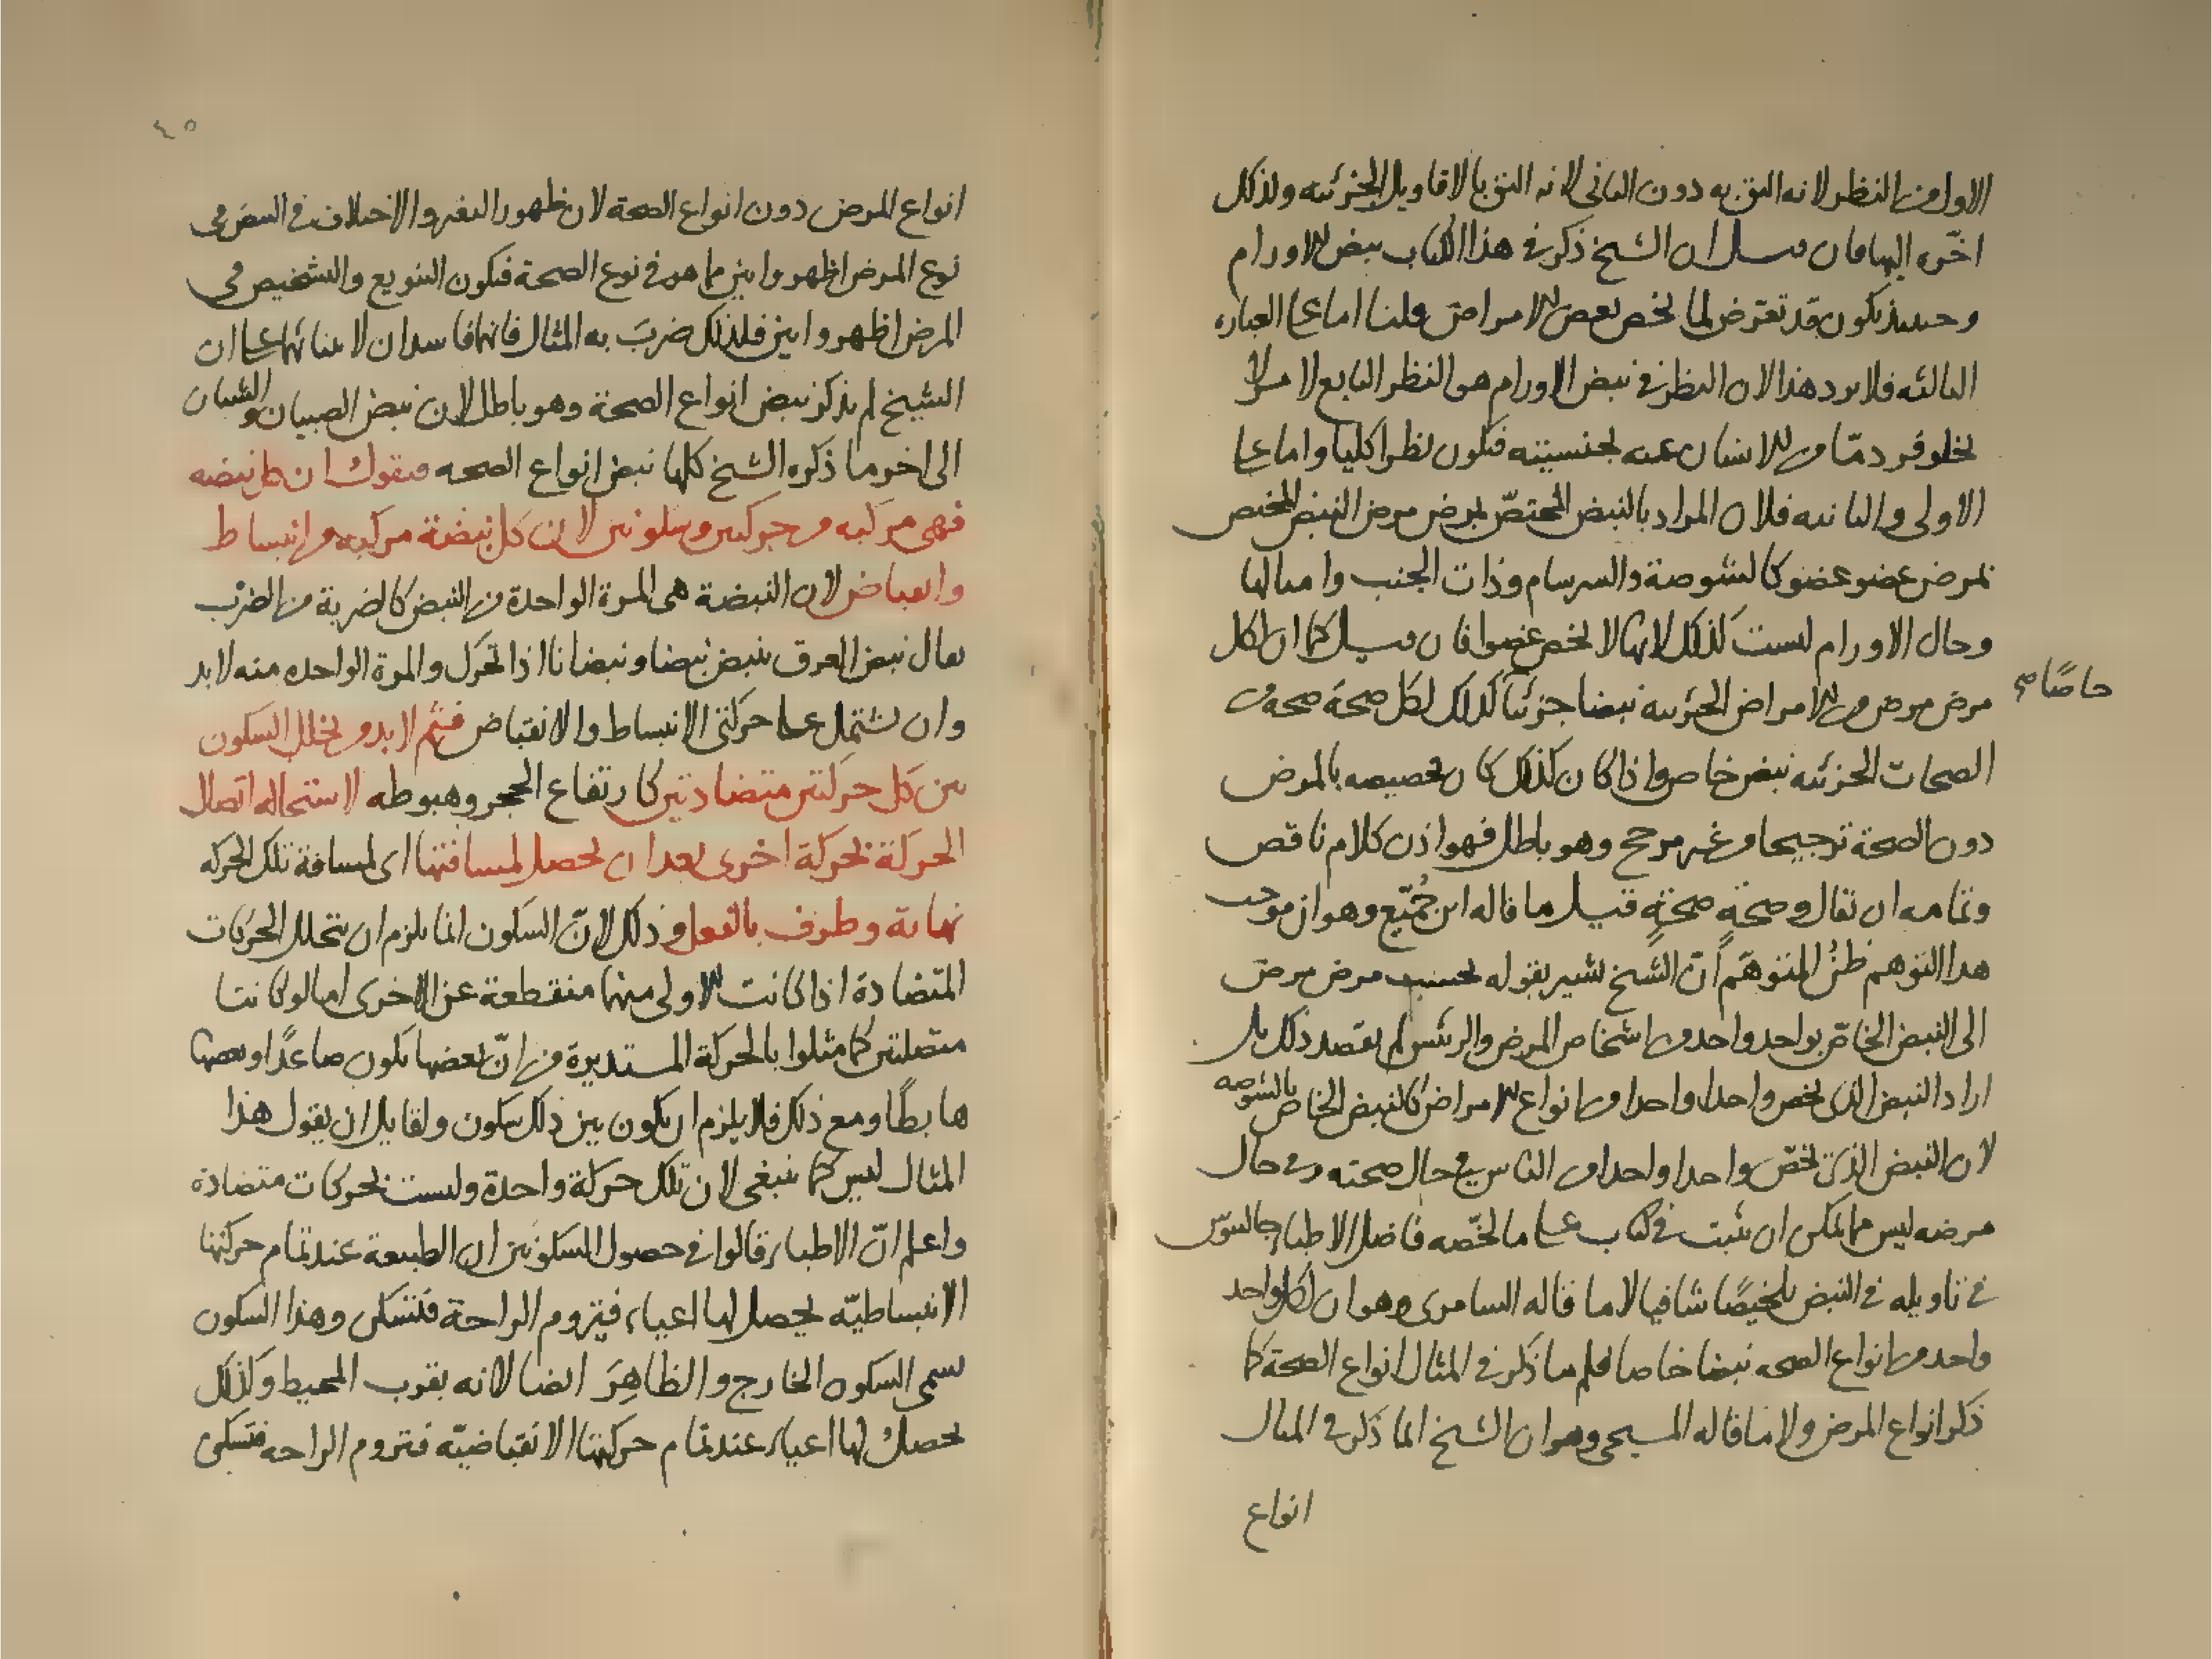 الاول من النظر لانه اليق به دون الثاني لانه اليق بالاقاويل الجزئيه ولذلك
اخره اليها فان قيل ان الشيخ ذكر في هذا الكتاب نبض الاورام
وحينئذ يكون قد تعرض لما يخص بعض الامراض قلنا اما على العباره
الثالثه فلا يرد هذا لان النظر في نبض الاورام هو النظر التابع لامر لا
يخلو فرد ما من الانسان عنه بجنسيته فيكون نظرا كليا واما على
الاولى والثانيه فلان المراد بالنبض المختص بمرض مرض النبض المختص
بمرض عضو عضو كالشوصة والسرسام وذات الجنب وامثالها
وحال الاورام ليست كذلك لانها لا تخص عضوا فان قيل كما ان لكل
مرض مرض من الامراض الجزئيه نبضا جزئيا كذلك لكل صحة صحة من
خاصا صح
الصحات الجزئيه نبض خاص واذا كان كذلك كان تخصيصه بالمرض
دون الصحة ترجيحا من غير مرجح وهو باطل فهو اذن كلام ناقص
وتمامه ان يقال وصحة صحة قيل ما قاله ابن جميع وهو ان موجب
هذا التوهم ظن المتوهم ان الشيخ يشير بقوله بحسب مرض مرض
الى النبض الخاص بواحد واحد من اشخاص المرض والرئيس لم يقصد ذلك بل
اراد النبض الذي يخص واحدا واحدا من انواع الامراض كالنبض الخاص بالشوصه
لان النبض الذي يخص واحدا واحدا من الناس في حال صحته وفي حال
مرضه ليس مما يمكن ان يثبت في كتاب على ما لخصه فاضل الاطباء جالينوس
في تاويله في النبض تلخيصا شافيا لا ما قاله السامري وهو ان لكل واحد
واحد من انواع الصحه نبضا خاصا فلم ما ذكر في المثال انواع الصحة كما
ذكر انواع المرض ولا ما قاله المسيحي وهو ان الشيخ انما ذكر في المثال
انواع
٤٥
انواع المرض دون انواع الصحة لان ظهور التغير والاختلاف في النبض في
نوع المرض اظهر وابين مما هو في نوع الصحة فيكون التنويع والتشخيص في
المرض اظهر وابين فلذلك ضرب به المثال فانهما فاسدان لابتنائهما على ان
الشيخ لم يذكر نبض انواع الصحة وهو باطل لان نبض الصبيان والشبان
الى اخر ما ذكره الشيخ كلها نبض انواع الصحه فنقول ان كل نبضه
فهى مركبه من حركتين وسكونين لان كل نبضة مركبه من انبساط
وانقباض لان النبضة هى المرة الواحدة من النبض كالضربة من الضرب
يقال نبض العرق ينبض نبضا ونبضانا اذا تحرك والمرة الواحده منه لا بد
وان تشتمل على حركتى الانبساط والانقباض فثم لا بد من تخلل السكون
بين كل حركتين متضادتين كارتفاع الحجر وهبوطه لاستحاله اتصال
الحركة بحركة اخرى بعد ان يحصل لمسافتها اى لمسافة تلك الحركه
نهاية وطرف بالفعل وذلك لان السكون انما يلزم ان يتخلل الحركات
المتضادة اذا كانت الاولى منهما منقطعة عن الاخرى اما لو كانتا
متصلتين كما مثلوا بالحركة المستديرة من ان بعضها يكون صاعدا وبعضها
هابطا ومع ذلك فلا يلزم ان يكون بين ذلك سكون ولقايل ان يقول هذا
المثال ليس كما ينبغى لان تلك حركة واحدة وليست بحركات متضادة
واعلم ان الاطباء قالوا في حصول السكونين ان الطبيعة عند تمام حركتها
الانبساطيه يحصل لها اعياء فيتروم الراحة فتسكن وهذا السكون
يسمى السكون الخارج والظاهر ايضا لانه بقرب المحيط وكذلك
يحصل لها اعياء عند تمام حركتها الانقباضيه فتروم الراحه فتسكن